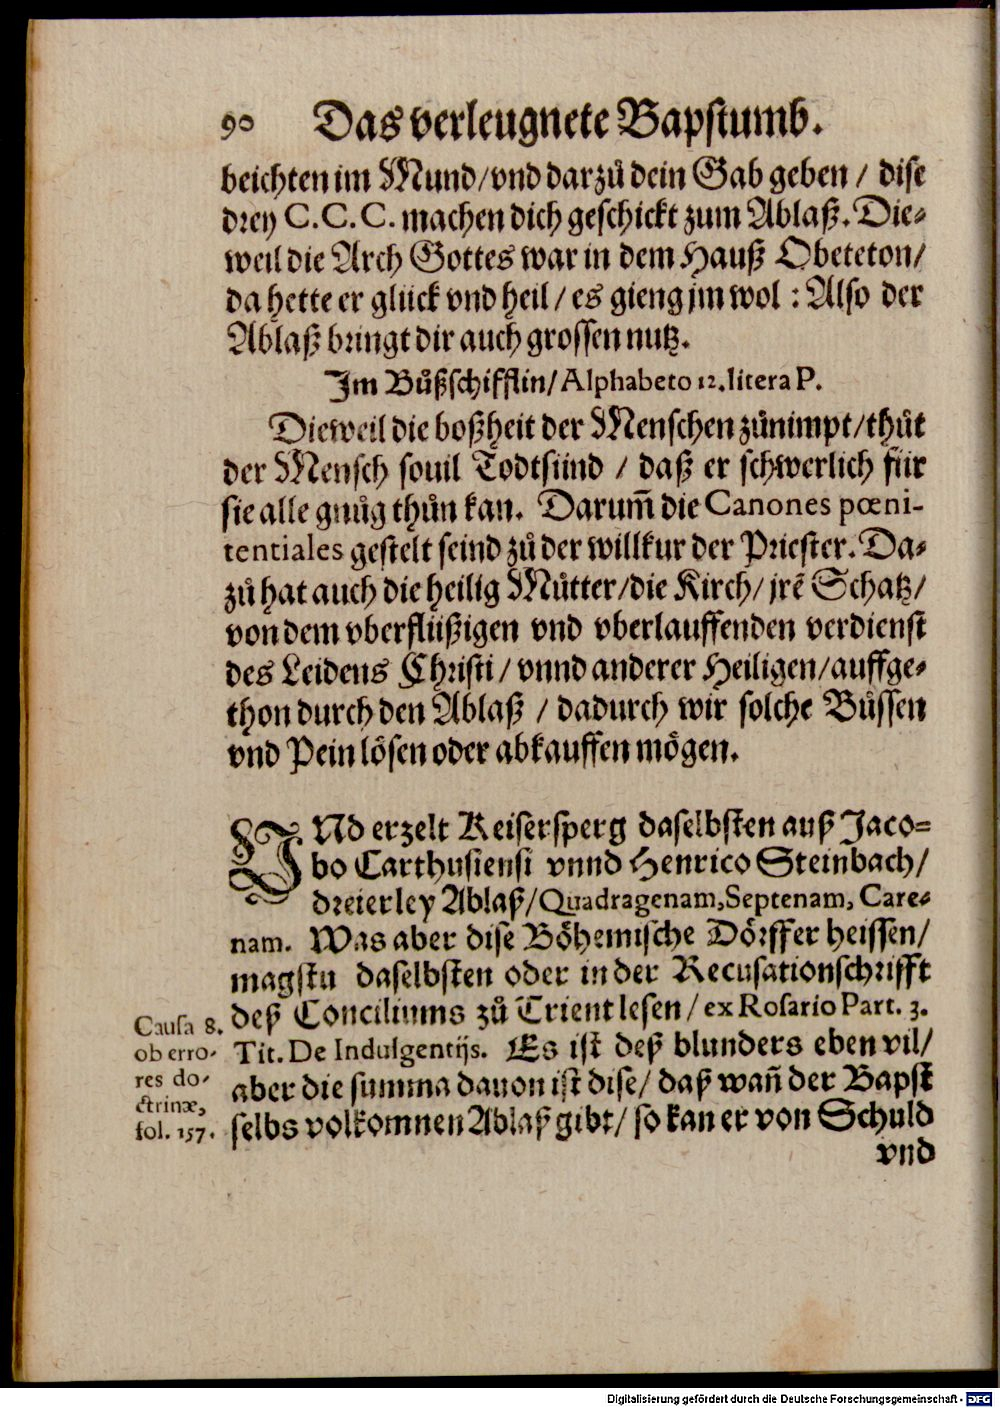 90 Das verleugnete Bapstumb.
beichten im Mund/vnd darzů dein Gab geben / dise
drey C.C.C. machen dich geschickt zum Ablaß. Die-
weil die Arch Gottes war in dem Hauß Obeteton/
da hette er glück vnd heil / es gieng jm wol : Also der
Ablaß bringt dir auch grossen nutz.
Im Bůßschifflin/Alphabeto 12. litera P.
Dieweil die boßheit der Menschen zůnimpt/thůt
der Mensch souil Todtsünd / daß er schwerlich für
sie alle gnůg thůn kan. Darum̃ die Canones pœni-
tentiales gestelt seind zů der willkur der Priester. Da-
zů hat auch die heilig Můtter/die Kirch/ jrẽ Schatz/
von dem vberflüßigen vnd vberlauffenden verdienst
des Leidens Christi / vnnd anderer Heiligen/auffge-
thon durch den Ablaß / dadurch wir solche Bůssen
vnd Pein lösen oder abkauffen mögen.
VNd erzelt Keisersperg daselbsten auß Jaco-
bo Carthusiensi vnnd Henrico Steinbach/
dreierley Ablaß/Quadragenam, Septenam, Care-
nam. Was aber dise Böhemische Dörffer heissen/
magstu daselbsten oder in der Recusationschrifft
deß Conciliums zů Trient lesen / ex Rosario Part. 3.
Tit. De Indulgentijs. Es ist deß blunders eben vil/
aber die summa dauon ist dise/ daß wañ der Bapst
selbs volkomnen Ablaß gibt/ so kan er von Schuld
vnd
Causa 8.
ob erro-
res do-
ctrinæ,
fol. 157.
Digitalisierung gefördert durch die Deutsche Forschungsgemeinschaft - DFG